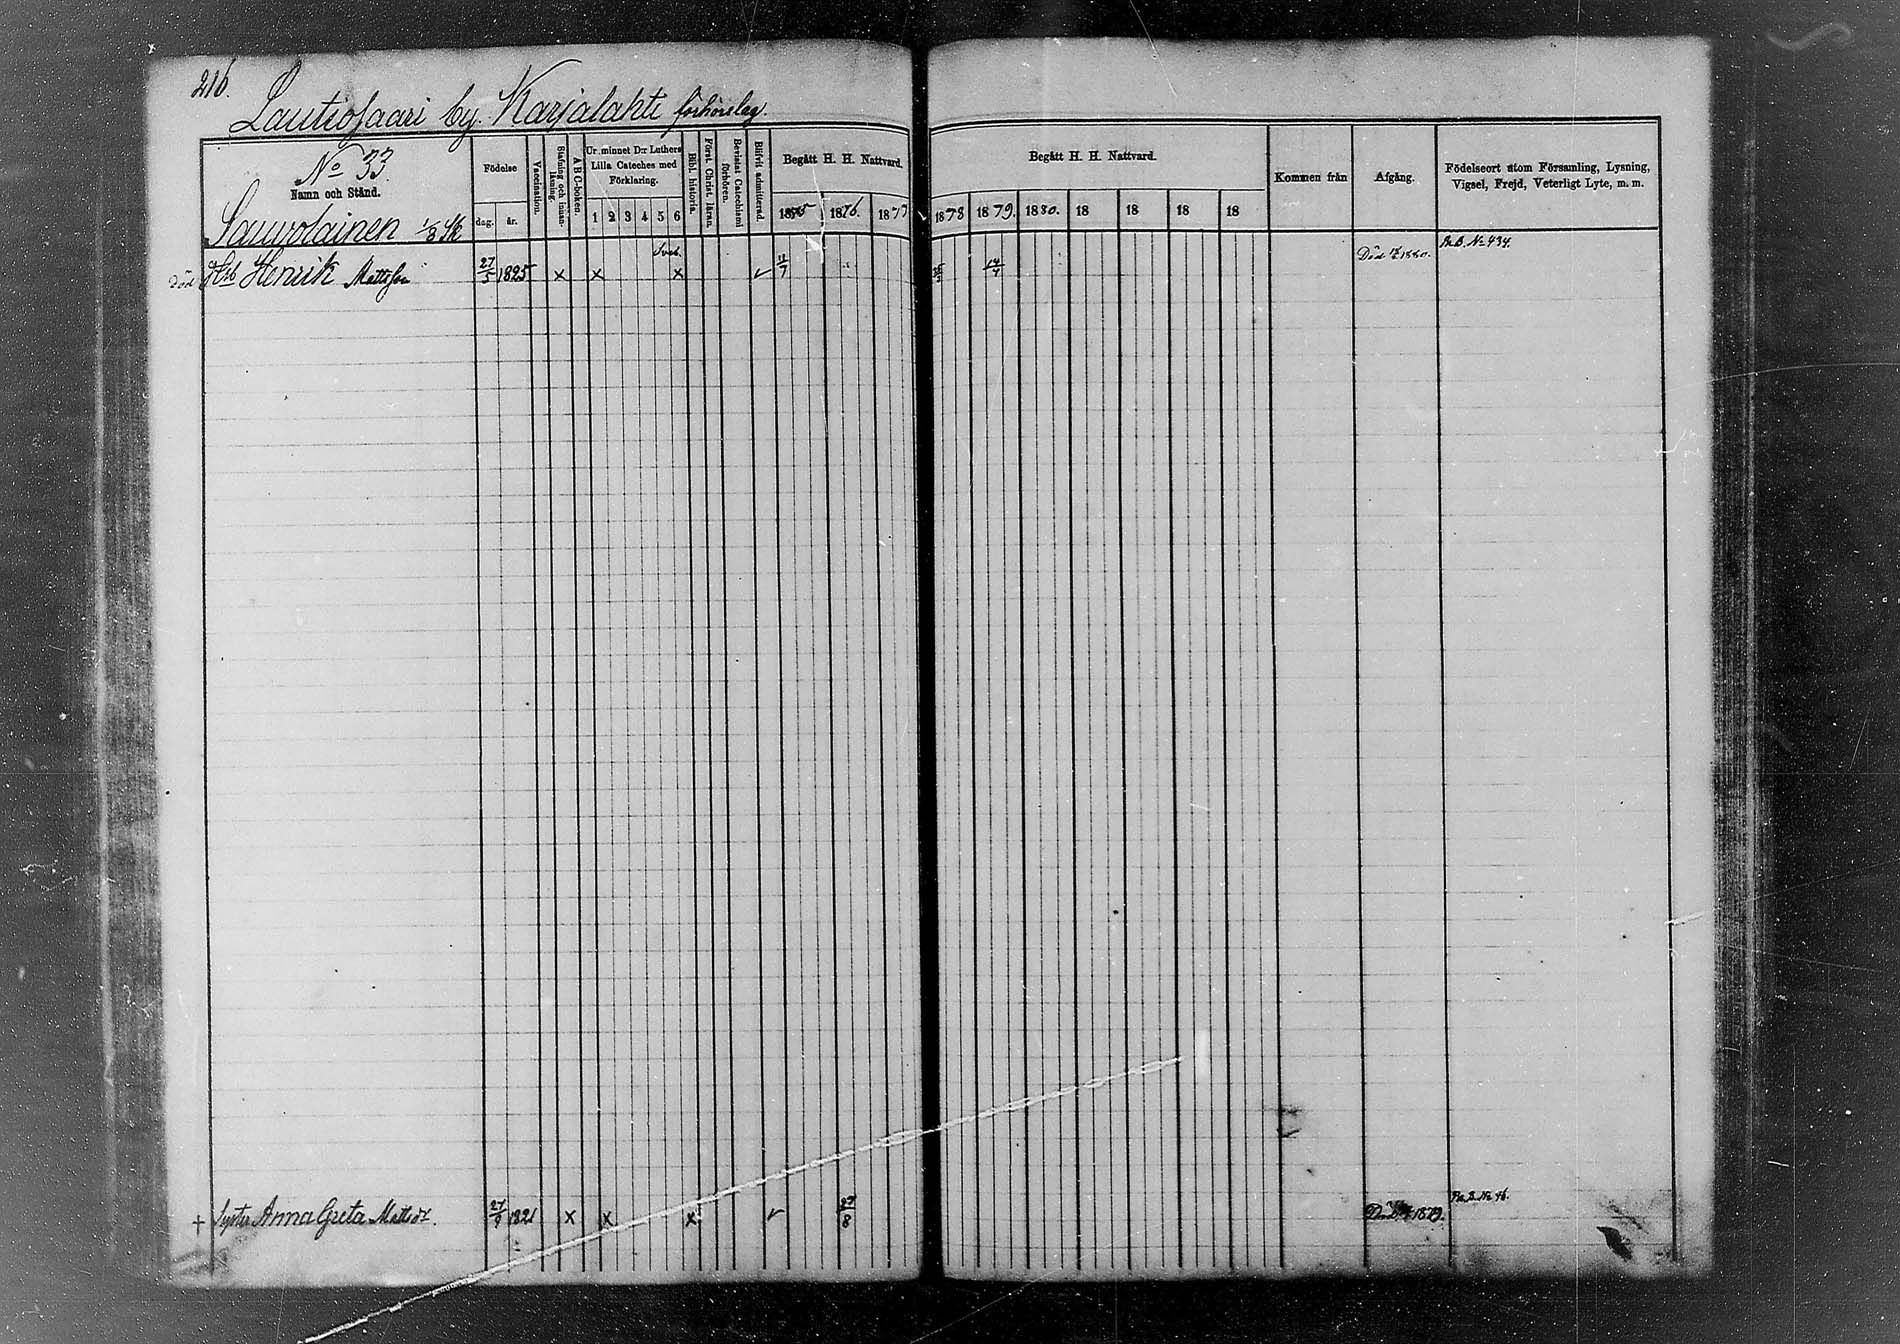 216.
Lautiosaari by. Karjalahti förhörslag.
No 33
Namn och Stånd.
Sauvolainen 1/8 Sk
Födelse
dag. år.
Vaccination.
Stafning och innanläsning.
A B C-boken.
Ur minnet D:r Luthers
Lilla Cateches med
Förklaring.
1 2 3 4 5 6
Bibl. historia.
Först. Christ. läran.
Bevistat Catechismi förhören.
Blifvit admitterad.
Begått H. H. Nattvard.
1875 1876. 1877
Begått H. H. Nattvard.
1878 1879. 1880. 18 18 18 18
Kommen från
Afgång.
Födelseort utom Församling, Lysning,
Vigsel, Frejd, Veterligt Lyte, m. m.
Död Henrik Mattsson 27/5 1825 x x x 11/7 14/4 Död 1880. No 434.
† Syster Anna Greta Matts dr. 27/9 1821 x x x 27/8 Död 1879. No 46.